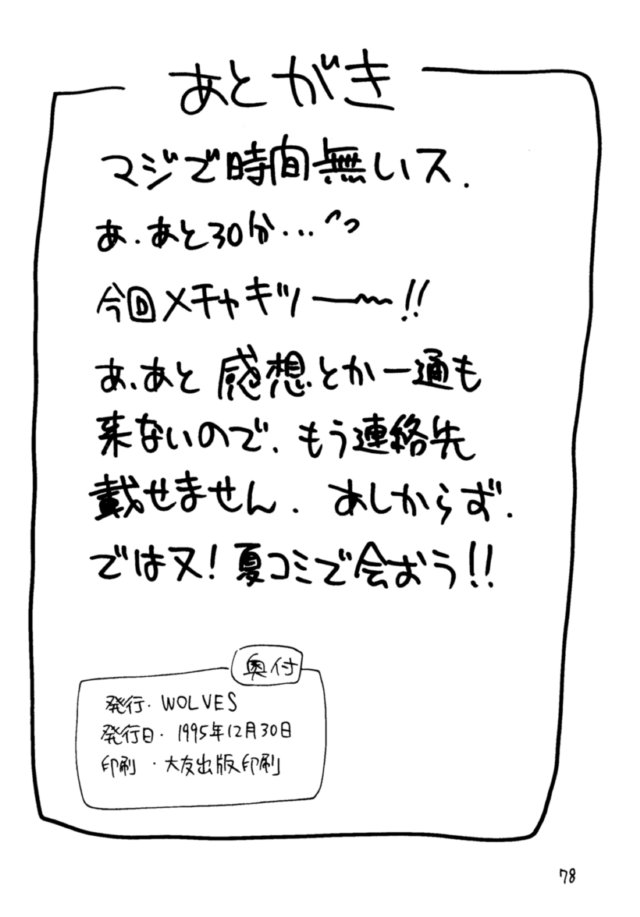 あとがき
マジで時間無いス.
あ.あと30分…^っ
今回メチャキツー〜〜!!
あ、あと感想とか一通も
来ないので、もう連絡先
載せません. あしからず.
では又! 夏コミで会おう!!
奥付
発行・WOLVES
発行日・1995年12月30日
印刷・大友出版印刷
78